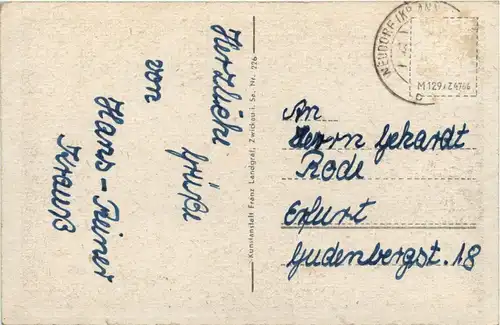 Herzliche
Grüße
von
Hans-Reiner
Krauß
Kunstanstalt Franz Landgraf, Zwickau i. Sa. Nr. 226
NEUDORF (KR. ANN
c
M 129/Z 4766
An
Herrn Gekardt
Rode
Erfurt
Gudenbergst. 18